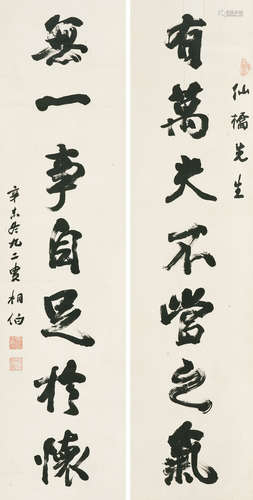 仙橋先生
有萬夫不當之氣
無一事自足於懷
辛未冬九二叟相伯